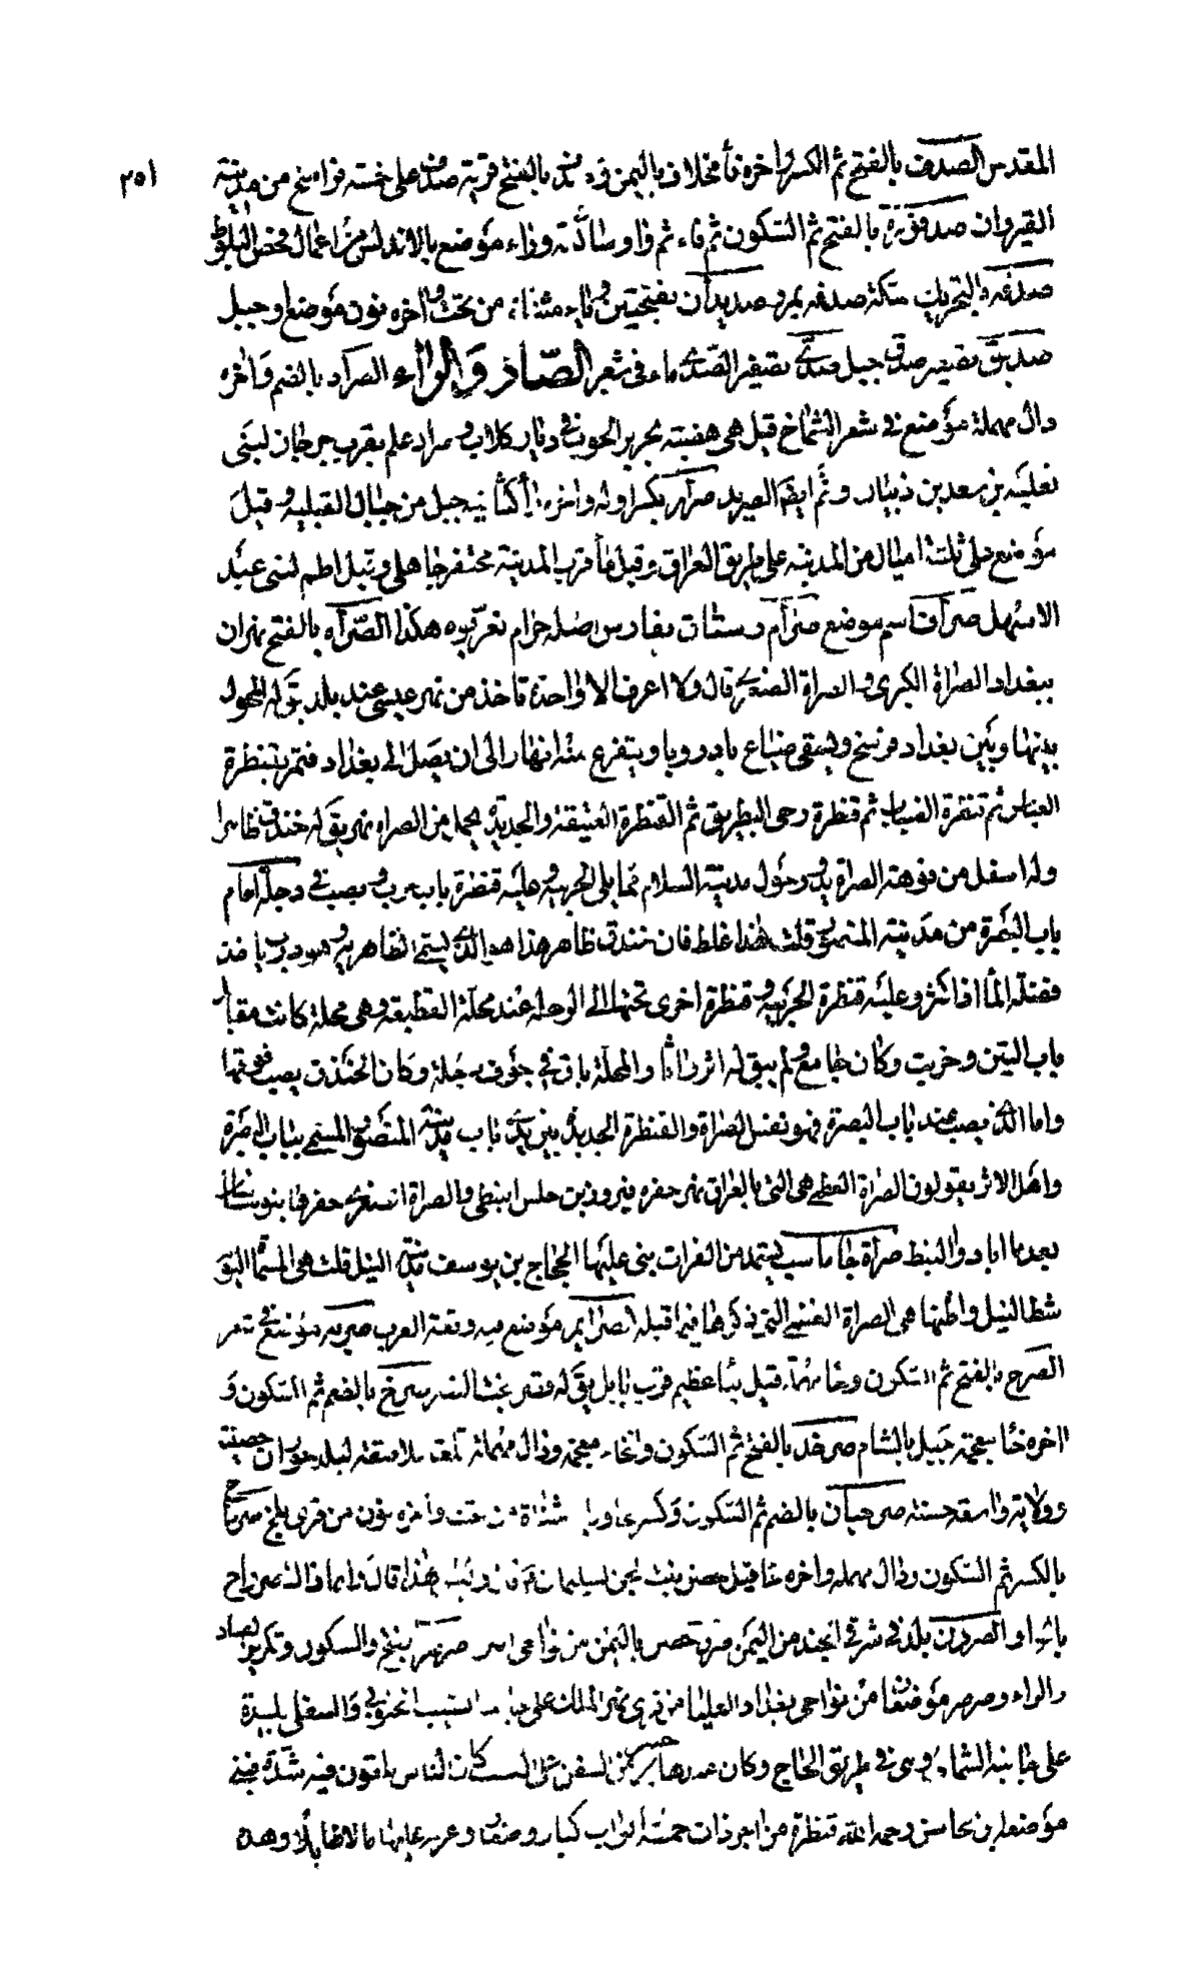 ٢٥١
المقدس الصدف بالفتح ثم الكسر واخره فأ مخلاف باليمن بالفتح قرية على خمسة فراسخ من مدينة
القيروان صدفورة بالفتح ثم السكون ثم فاء ثم واو ساكنة وراء موضع بالاندلس من اعمال فحص البلوط
صدفه بالتحريك سكة صدفه بمرو صديان بفتحتين وياء مثناة من تحت واخره نون موضع او جبل
صديق تصغير صدق جبل صدى تصغير الصدى ماء فى شعر الصاد والراء الصراد بالضم واخره
دال مهملة موضع فى شعر الشماخ قيل هى هضبة بحزيز الحوب فى ديار كلاب و صراد علم بقرب رحرحان لبنى
ثعلبة بن سعد بن ذبيان وثم ايضا الصريد صرار بكسر اوله واخره جبل من جبال القبلية وقيل
موضع على ثلثة اميال من المدينة على طريق العراق وقيل مأ قرب المدينة محتفر جاهلى وقيل اطم لبنى عبد
الاشهل صراف اسم موضع صرام رستاق بفارس اصله جرام تعريبه هكذا الصراه بالفتح نهران
ببغداد الصراة الكبرى و الصراة الصغرى قال ولا اعرف الا واحدة تاخذ من نهر عيسى عند بلد يق له المحول
بينها وبين بغداد فرسخ ويسقى ضياع بادوريا ويتفرع منه انهار الى ان يصل الى بغداد فتمر بقنطرة
العباس ثم قنطرة الصبيات ثم قنطرة رحى البطريق ثم القنطرة العتيقة والجديدة يحمل من الصراه نهر يق له خندق طاهر
وله اسفل من فوهة الصراة يدور حول مدينة السلام مما يلى الحربية وعليه قنطرة باب حرب ويصب فى دجلة امام
باب البصرة من مدينة المنصور قلت هذا غلط فان خندق طاهر هذا هو الذى يسمى الظاهرية وهو يأخذ
فضلة المأ اذا كثر وعليه قنطرة الحربية وقنطرة اخرى تحتها الى الوجه عند محلة القطيعة وهى محلة كانت مقابل
باب التين وخربت وكان جامع لم يبق له اثر والمحلة باق فى جوف دجلة وكان الخندق يصب فوقها
واما الذى يصب عند باب البصرة فهو نفس الصراة والقنطرة الجديدة بين يدى باب مدينة المنصور المسمى بباب البصرة
واهل الاثر يقولون الصراة العظمى هى التى بالعراق نهر حفره فيروز بن جلس النبطى والصراة الصغرى حفرها بنو ساسان
بعد ما ابادوا النبط صراة جاماسب يستمد من الفرات بنى عليها الحجاج بن يوسف مدينة النيل قلت هى المسماة اليوم
شط النيل واظنها هى الصراة العظمى التى ذكرها فيما قبله الصرائم موضع فيه وقعة العرب صربه موضع فى شعر
الصرح بالفتح ثم السكون وحا مهملة قيل بنا عظيم قرب بابل يق له قصر بخت النصر صرخ بالضم ثم السكون و
اخره خا معجمة جبل بالشام صرخد بالفتح ثم السكون والخاء معجمة ودال مهملة قلعة ملاصقة لبلد حوران حصينة
وولاية واسعة حسنة صرخيان بالضم ثم السكون وكسر خا ويا مثناة من تحت واخره نون من قرى بلخ
بالكسر ثم السكون ودال مهملة واخره حا قيل حصن بنته لجن لسليمان
الصردف بلد فى شرقى الجند من اليمن حصن باليمن من نواحى صرصر بفتح والسكون وتكرير الصاد
والراء وصرصر موضعان من نواحى بغداد العليا من قرى نهر الملك على السيب الجنوبى والسفلى بليدة
على جانبه الشمالى وهى فى طريق الحاج وكان عندها جسر من السفن كان الناس يلقون فيه شدة فبنى
موضعه بن محاسن رحمه الله قنطرة من اجر ذات خمسة ابواب كبار وصغار